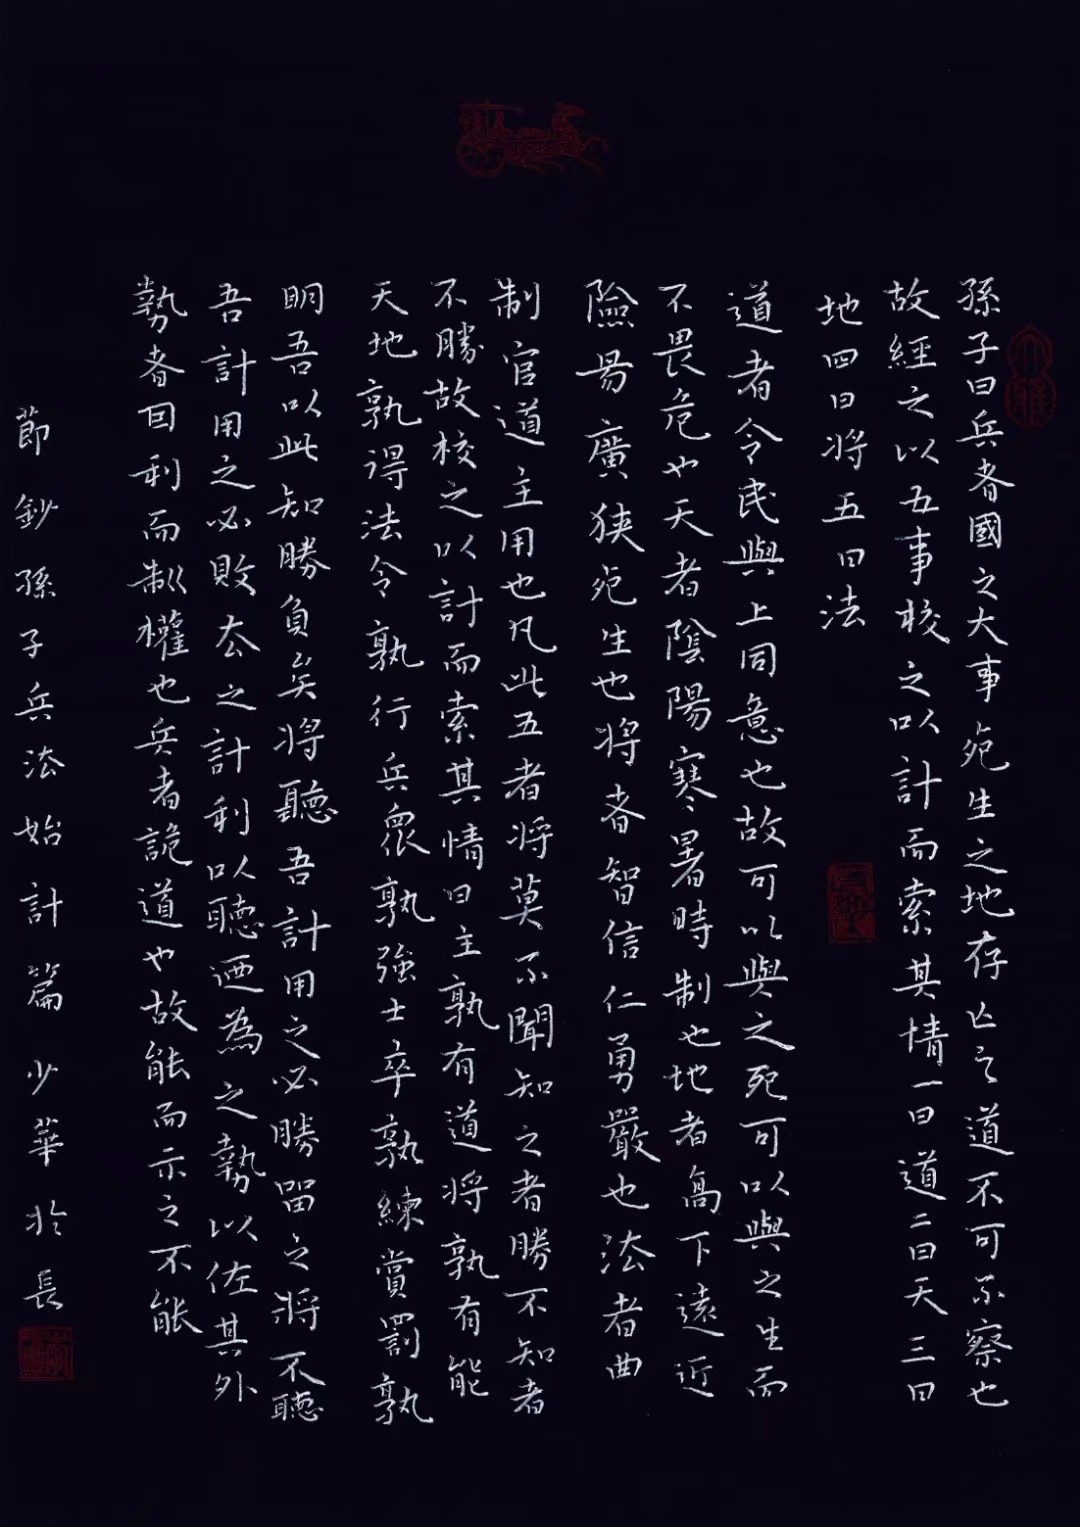 孫子曰兵者國之大事死生之地存亡之道不可不察也
故經之以五事校之以計而索其情一曰道二曰天三曰
地四曰将五曰法
道者令民與上同意也故可以與之死可以與之生而
不畏危也天者陰陽寒暑時制也地者高下遠近
險易廣狹死生也將者智信仁勇嚴也法者曲
制官道主用也凡此五者将莫不聞知之者勝不知者
不勝故校之以計而索其情曰主孰有道将孰有能
天地孰得法令孰行兵衆孰強士卒孰練賞罰孰
明吾以此知勝負矣将聽吾計用之必勝留之将不聽
吾計用之必敗去之計利以聽迺為之勢以佐其外
勢者因利而制權也兵者詭道也故能而示之不能
節鈔孫子兵法始計篇少華於長